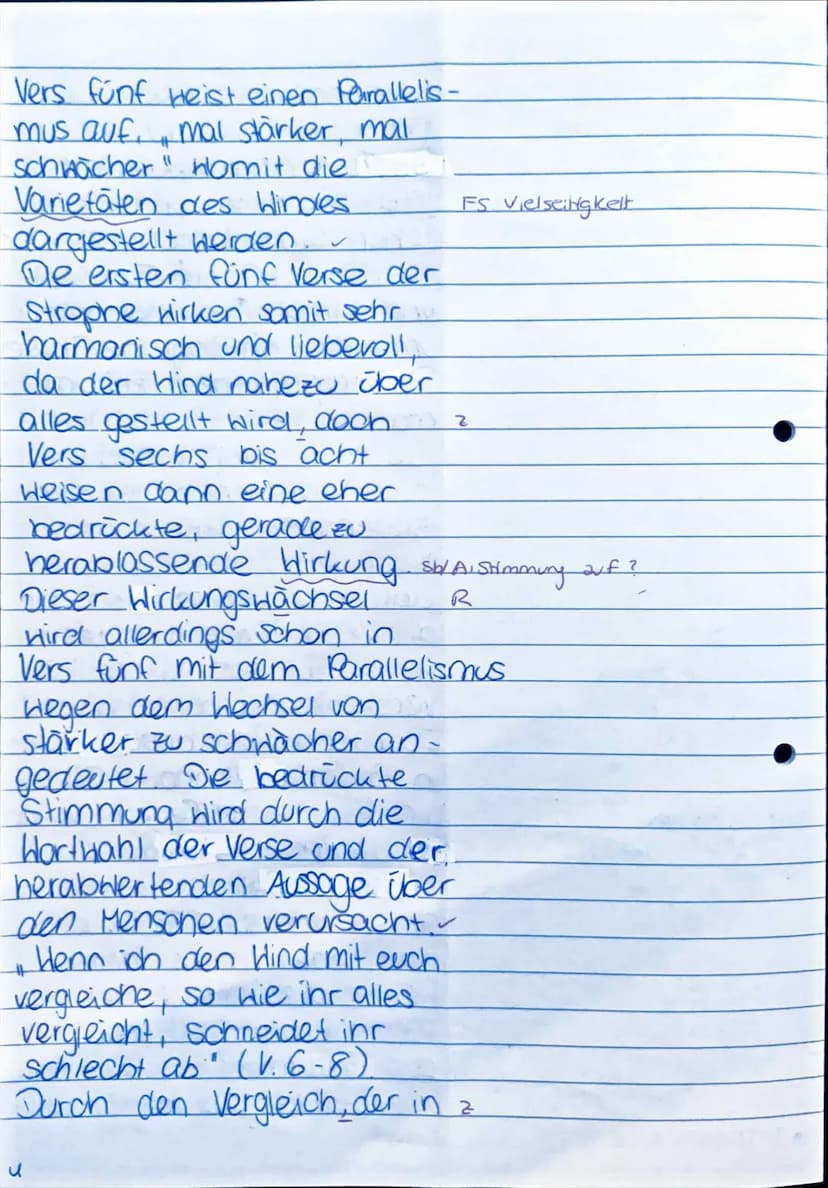 Vers fünf weist einen Parallelis-
mus auf. „mal stärker, mal
schwächer" womit die
Varietäten des Windes FS Vielseitigkeit
dargestellt werden. ✓
Die ersten fünf Verse der
Strophe wirken somit sehr
harmonisch und liebevoll,
da der Wind nahezu über
alles gestellt wird, doch Z
Vers sechs bis acht
weisen dann eine eher
bedrückte, geradezu
herablassende Wirkung. Sb/A: Stimmung auf?
Dieser Wirkungswächsel R
wird allerdings schon in
Vers fünf mit dem Parallelismus
wegen dem Wechsel von
stärker zu schwächer an-
gedeutet. Die bedrückte
Stimmung wird durch die
Wortwahl der Verse und der
herabwertenden Aussage über
den Menschen verursacht. ✓
„Wenn ich den Wind mit euch
vergleiche, so wie ihr alles
vergleicht, schneidet ihr
schlecht ab" (V. 6-8)
Durch den Vergleich, der in Z
4